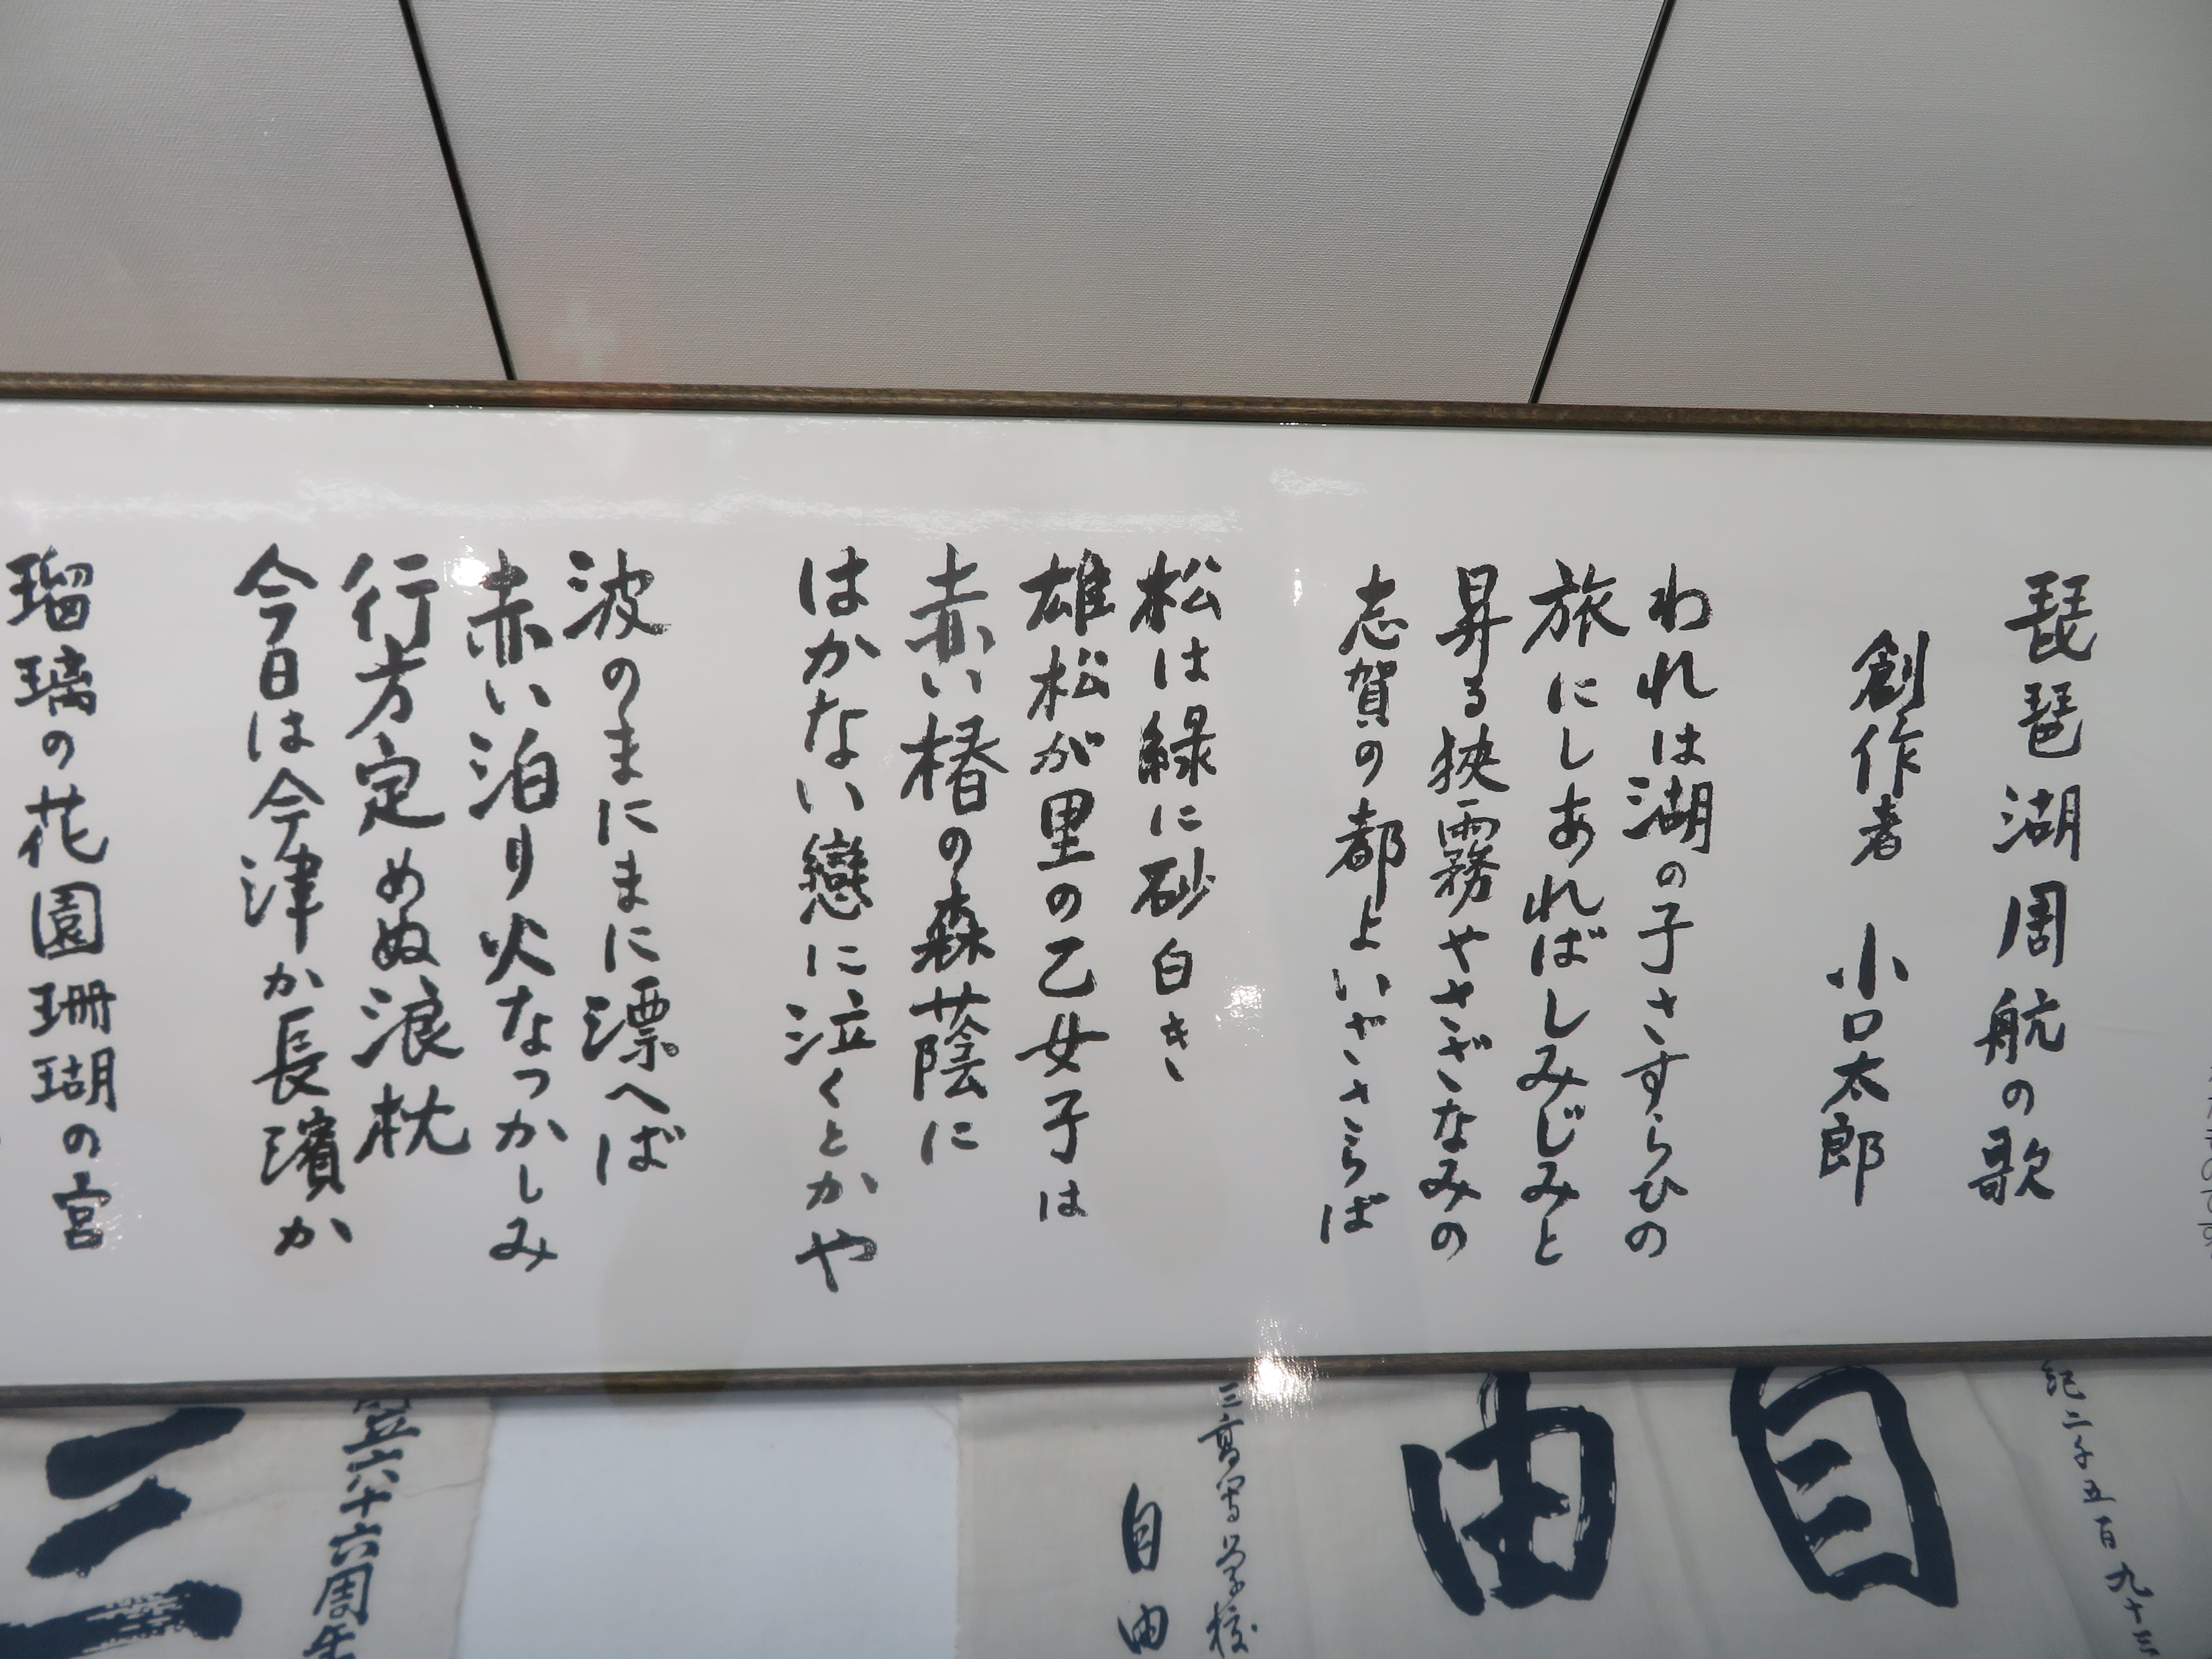 琵琶湖周航の歌
創作者 小口太郎
われは湖の子さすらひの
旅にしあればしみじみと
昇る狭霧やさざなみの
志賀の都よいざさらば
松は緑に砂白き
雄松が里の乙女子は
赤い椿の森蔭に
はかない戀に泣くとかや
波のまにまに漂へば
赤い泊り火なつかしみ
行方定めぬ浪枕
今日は今津か長濱か
瑠璃の花園珊瑚の宮
紀二千五百九十三
自由
三高等学校
自由
立六十六周年
三